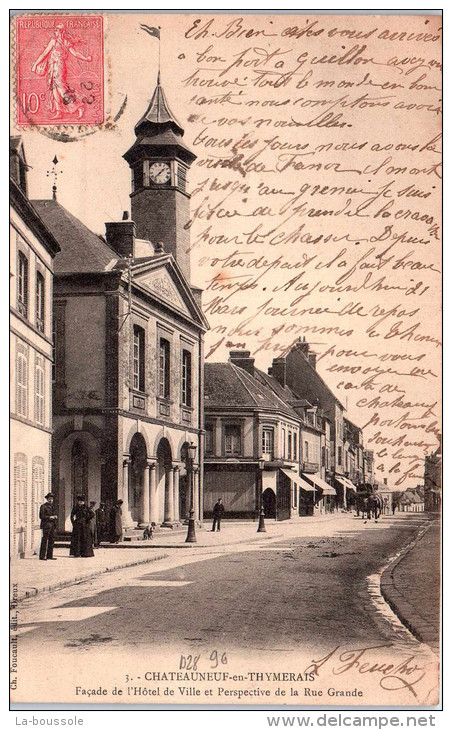 REPUBLIQUE FRANÇAISE
10c
Eh Bien êtes vous arrivés
a bon port a Guillon avez vous
trouvé tout le monde en bon
santé nous comptons avoir
de vos nouvelles.
Tous les jours nous avons la
visite de il mont
jusqu'au grenier je suis
de prendre la
pour le chasser. Depuis
votre départ il fait beau
temps. Aujourd'hui
jour journée de repos
nous sommes a
pour vous
envoyer une
carte de
chateau
la
3. - CHATEAUNEUF-en-THYMERAIS
Façade de l'Hôtel de Ville et Perspective de la Rue Grande
Ch. Foucault, édit., Dreux
D28 96
La-boussole
www.delcampe.net